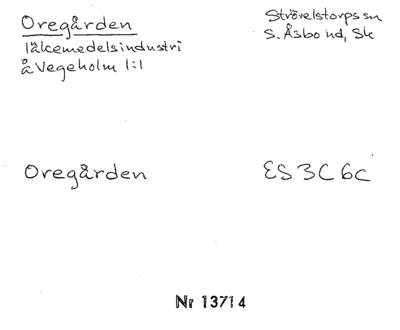 Oregården
läkemedelsindustri
å Vegeholm 1:1
Strövelstorps sn
S. Åsbo hd, Sk
Oregården
ES 3C 6c
Nr 13714